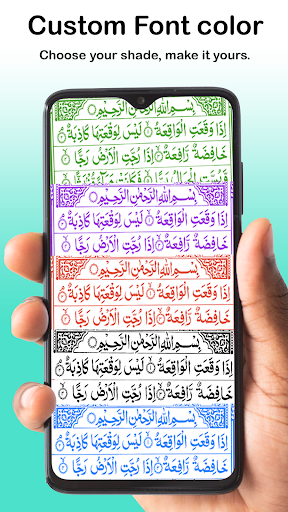 Custom Font color
Choose your shade, make it yours.
بِسْمِ اللهِ الرَّحْمٰنِ الرَّحِيْمِ
اِذَا وَقَعَتِ الْوَاقِعَةُ ۙ لَيْسَ لِوَقْعَتِهَا كَاذِبَةٌ ۘ
خَافِضَةٌ رَّافِعَةٌ ۙ اِذَا رُجَّتِ الْاَرْضُ رَجًّا ۙ
بِسْمِ اللهِ الرَّحْمٰنِ الرَّحِيْمِ
اِذَا وَقَعَتِ الْوَاقِعَةُ ۙ لَيْسَ لِوَقْعَتِهَا كَاذِبَةٌ ۘ
خَافِضَةٌ رَّافِعَةٌ ۙ اِذَا رُجَّتِ الْاَرْضُ رَجًّا ۙ
بِسْمِ اللهِ الرَّحْمٰنِ الرَّحِيْمِ
اِذَا وَقَعَتِ الْوَاقِعَةُ ۙ لَيْسَ لِوَقْعَتِهَا كَاذِبَةٌ ۘ
خَافِضَةٌ رَّافِعَةٌ ۙ اِذَا رُجَّتِ الْاَرْضُ رَجًّا ۙ
بِسْمِ اللهِ الرَّحْمٰنِ الرَّحِيْمِ
اِذَا وَقَعَتِ الْوَاقِعَةُ ۙ لَيْسَ لِوَقْعَتِهَا كَاذِبَةٌ ۘ
خَافِضَةٌ رَّافِعَةٌ ۙ اِذَا رُجَّتِ الْاَرْضُ رَجًّا ۙ
بِسْمِ اللهِ الرَّحْمٰنِ الرَّحِيْمِ
اِذَا وَقَعَتِ الْوَاقِعَةُ ۙ لَيْسَ لِوَقْعَتِهَا كَاذِبَةٌ ۘ
خَافِضَةٌ رَّافِعَةٌ ۙ اِذَا رُجَّتِ الْاَرْضُ رَجًّا ۙ